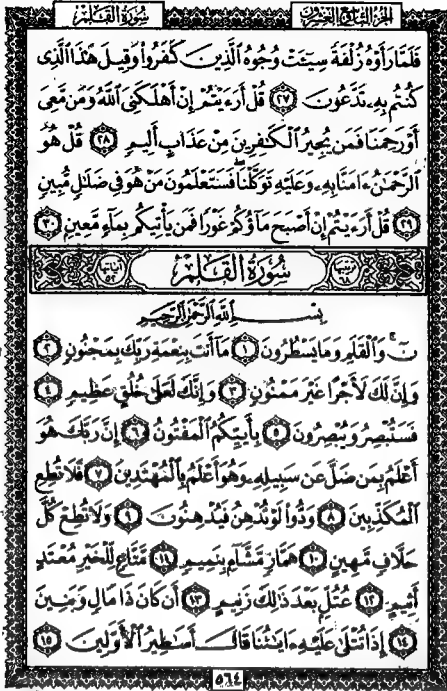 سُورَةُ القَلَمِ الجُزْءُ التَّاسِعُ وَالعِشْرُونَ
فَلَمَّا رَأَوْهُ زُلْفَةً سِيٓـَٔتْ وُجُوهُ ٱلَّذِينَ كَفَرُوا۟ وَقِيلَ هَٰذَا ٱلَّذِى
كُنتُم بِهِۦ تَدَّعُونَ ٢٧ قُلْ أَرَءَيْتُمْ إِنْ أَهْلَكَنِىَ ٱللَّهُ وَمَن مَّعِىَ
أَوْ رَحِمَنَا فَمَن يُجِيرُ ٱلْكَٰفِرِينَ مِنْ عَذَابٍ أَلِيمٍ ٢٨ قُلْ هُوَ
ٱلرَّحْمَٰنُ ءَامَنَّا بِهِۦ وَعَلَيْهِ تَوَكَّلْنَا ۖ فَسَتَعْلَمُونَ مَنْ هُوَ فِى ضَلَٰلٍ مُّبِينٍ
٢٩ قُلْ أَرَءَيْتُمْ إِنْ أَصْبَحَ مَآؤُكُمْ غَوْرًا فَمَن يَأْتِيكُم بِمَآءٍ مَّعِينٍۭ ٣٠
ترتيبها ٦٨ سُورَةُ القَلَمِ آياتها ٥٢
بِسْمِ ٱللَّهِ ٱلرَّحْمَٰنِ ٱلرَّحِيمِ
نٓ ۚ وَٱلْقَلَمِ وَمَا يَسْطُرُونَ ١ مَآ أَنتَ بِنِعْمَةِ رَبِّكَ بِمَجْنُونٍ ٢
وَإِنَّ لَكَ لَأَجْرًا غَيْرَ مَمْنُونٍ ٣ وَإِنَّكَ لَعَلَىٰ خُلُقٍ عَظِيمٍ ٤
فَسَتُبْصِرُ وَيُبْصِرُونَ ٥ بِأَييِّكُمُ ٱلْمَفْتُونُ ٦ إِنَّ رَبَّكَ هُوَ
أَعْلَمُ بِمَن ضَلَّ عَن سَبِيلِهِۦ وَهُوَ أَعْلَمُ بِٱلْمُهْتَدِينَ ٧ فَلَا تُطِعِ
ٱلْمُكَذِّبِينَ ٨ وَدُّوا۟ لَوْ تُدْهِنُ فَيُدْهِنُونَ ٩ وَلَا تُطِعْ كُلَّ
حَلَّافٍ مَّهِينٍ ١٠ هَمَّازٍ مَّشَّآءٍۭ بِنَمِيمٍ ١١ مَّنَّاعٍ لِّلْخَيْرِ مُعْتَدٍ
أَثِيمٍ ١٢ عُتُلٍّۭ بَعْدَ ذَٰلِكَ زَنِيمٍ ١٣ أَن كَانَ ذَا مَالٍ وَبَنِينَ
١٤ إِذَا تُتْلَىٰ عَلَيْهِ ءَايَٰتُنَا قَالَ أَسَٰطِيرُ ٱلْأَوَّلِينَ ١٥
٥٦٤